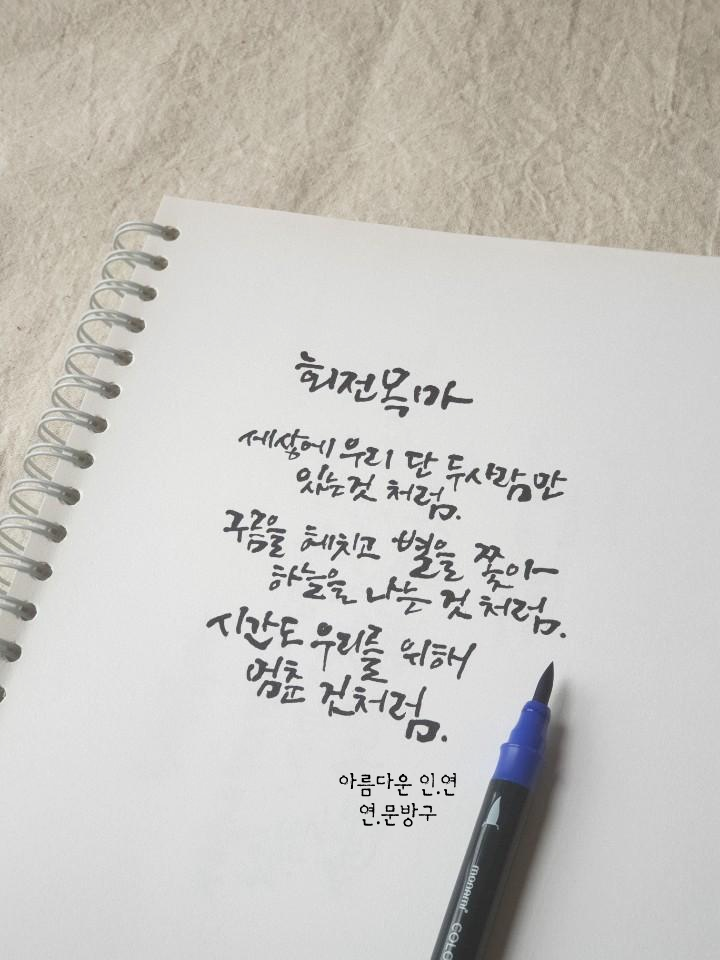 회전목마
세상에 우리 단 두사람만
있는것 처럼.
구름을 헤치고 별을 쫓아
하늘을 나는 것 처럼.
시간도 우리를 위해
멈춘 것처럼.
아름다운 인.연
연.문방구
monami COLO